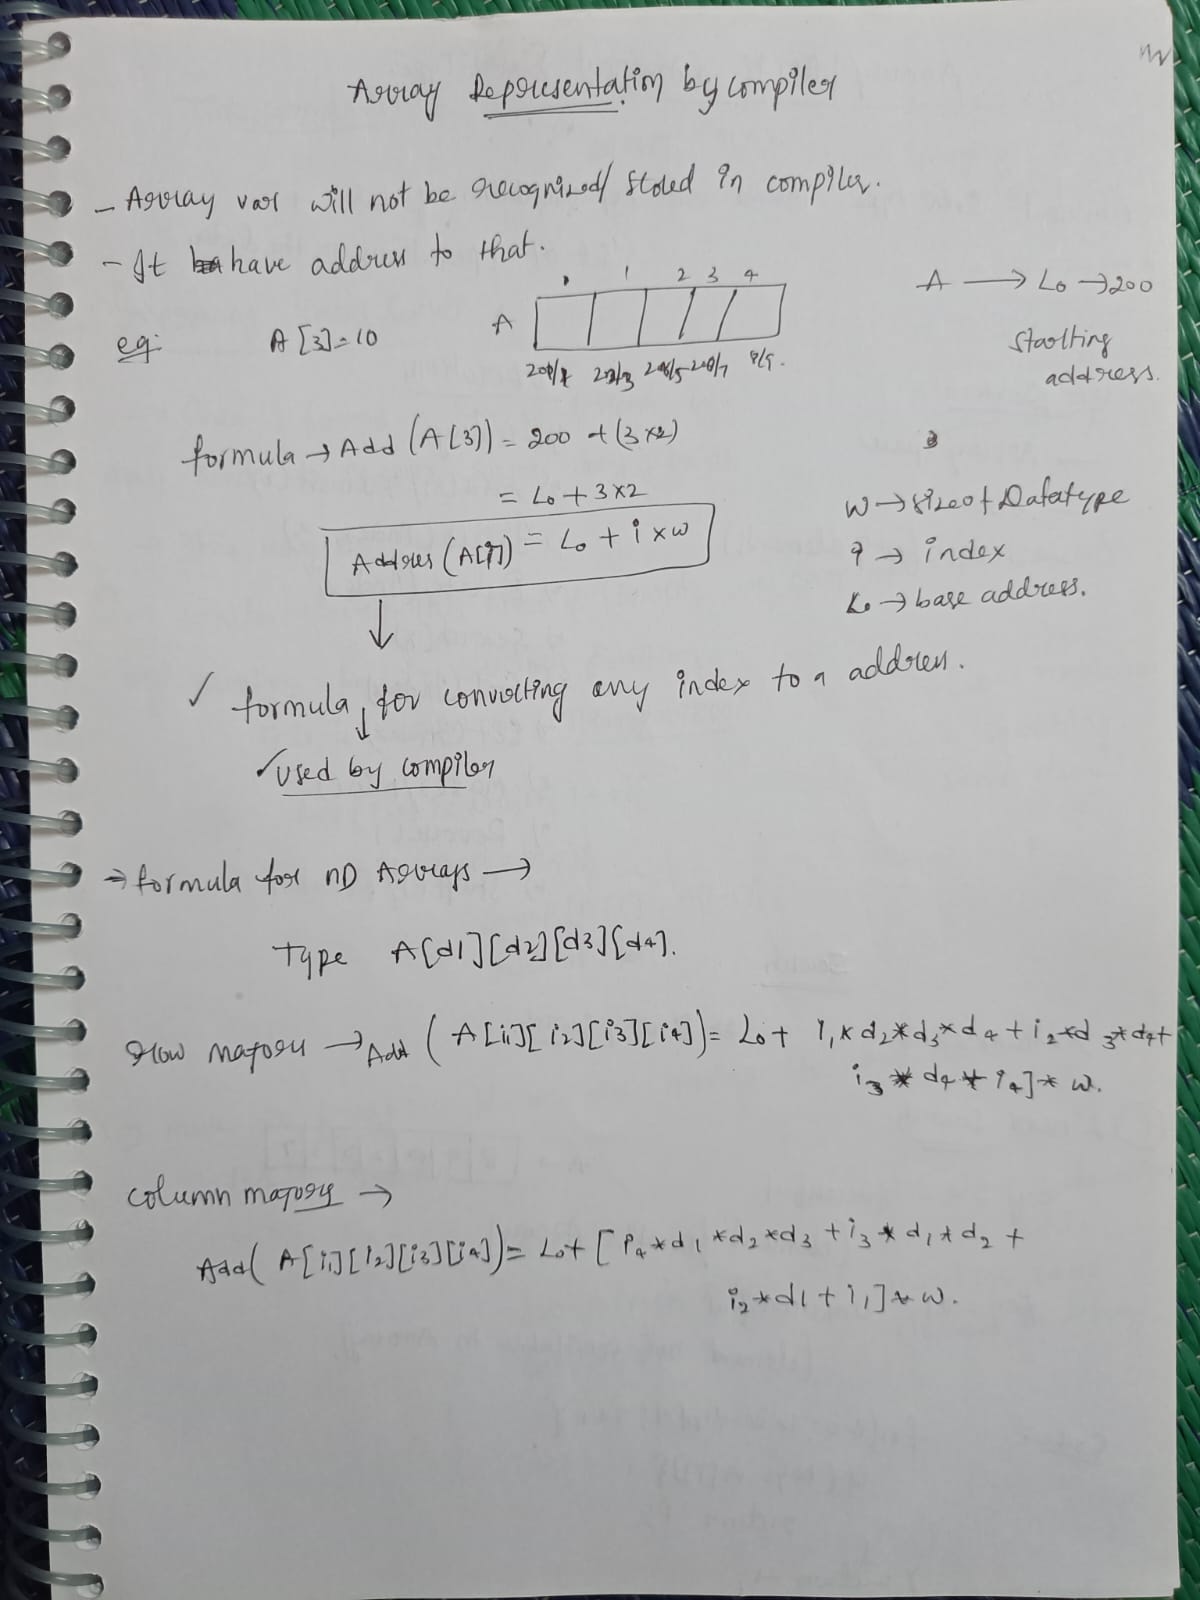 Array Representation by compiler
- Array var will not be recognized/ stored in compiler.
- It have address to that.
eg: A[3]=10
A
0 1 2 3 4
200/1 202/3 204/5 206/7 8/9.
A → L₀ → 200
starting
address.
formula → Add (A[3]) = 200 + (3x2)
= L₀ + 3x2
Addres (A[i]) = L₀ + i x w
w → size of Datatype
i → index
L₀ → base address.
✓ formula for converting any index to a address.
✓ used by compiler
⇒ formula for nD Arrays →
Type A[d1][d2][d3][d4].
Row major → Add ( A[i1][i2][i3][i4]) = L₀ + i₁*d₂*d₃*d₄ + i₂*d₃*d₄+
i₃ * d₄ * i₄] * w.
column major →
Add( A[i1][i2][i3][i4]) = L₀+ [ i₄*d₁*d₂*d₃ + i₃*d₁*d₂ +
i₂*d1+i₁] * w.